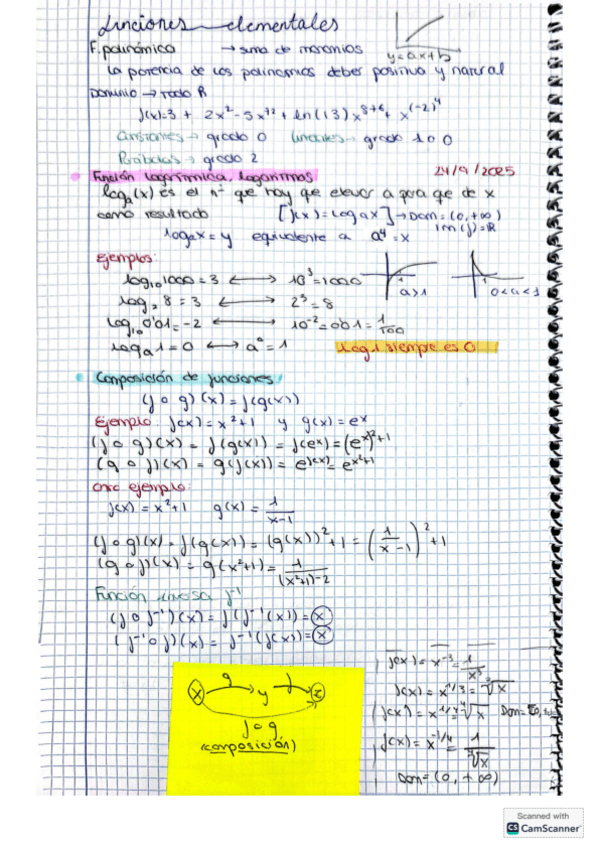 Funciones elementales
F. polinómica → suma de monomios
y=ax+b
La potencia de los polinomios deber positiva y natural
Dominio → Todo R
f(x)=3 + 2x² - 5x¹² + ln(13)x⁸⁺⁶ + x⁽⁻²⁾⁴
Constantes → grado 0 Lineales → grado 1 o 0
Parábolas → grado 2
Función logarítmica, logaritmos 24/9/2025
logₐ(x) es el nº que hay que elevar a para que de x
como resultado [f(x)=logax] → Dom=(0,+∞)
Im(f)=R
logₐx=y equivalente a a^y=x
Ejemplos:
log₁₀1000=3 ⟷ 10³=1000
a>1 0<a<1
log₂8=3 ⟷ 2³=8
log₁₀0'01=-2 ⟷ 10⁻²=0'01=1/100
logₐ1=0 ⟷ a⁰=1 Log1 siempre es 0
Composición de funciones
(f∘g)(x)=f(g(x))
Ejemplo: f(x)=x²+1 y g(x)=eˣ
(f∘g)(x)=f(g(x))=f(eˣ)=(eˣ)²+1
(g∘f)(x)=g(f(x))=e^f(x)=e^x²+1
Otro ejemplo:
f(x)=x²+1 g(x)=1/(x-1)
(f∘g)(x)=f(g(x))=(g(x))²+1=(1/(x-1))²+1
(g∘f)(x)=g(x²+1)=1/((x²+1)-2)
Función inversa f⁻¹
(f∘f⁻¹)(x)=f(f⁻¹(x))=x
(f⁻¹∘f)(x)=f⁻¹(f(x))=x
x g y f z
f∘g
(composición)
f(x)=x⁻³=1/x³
f(x)=x^1/3=∛x
f(x)=x^1/4=∜x
f(x)=x^-1/4=1/∜x
Dom=(0,+∞)
Scanned with
CS CamScanner